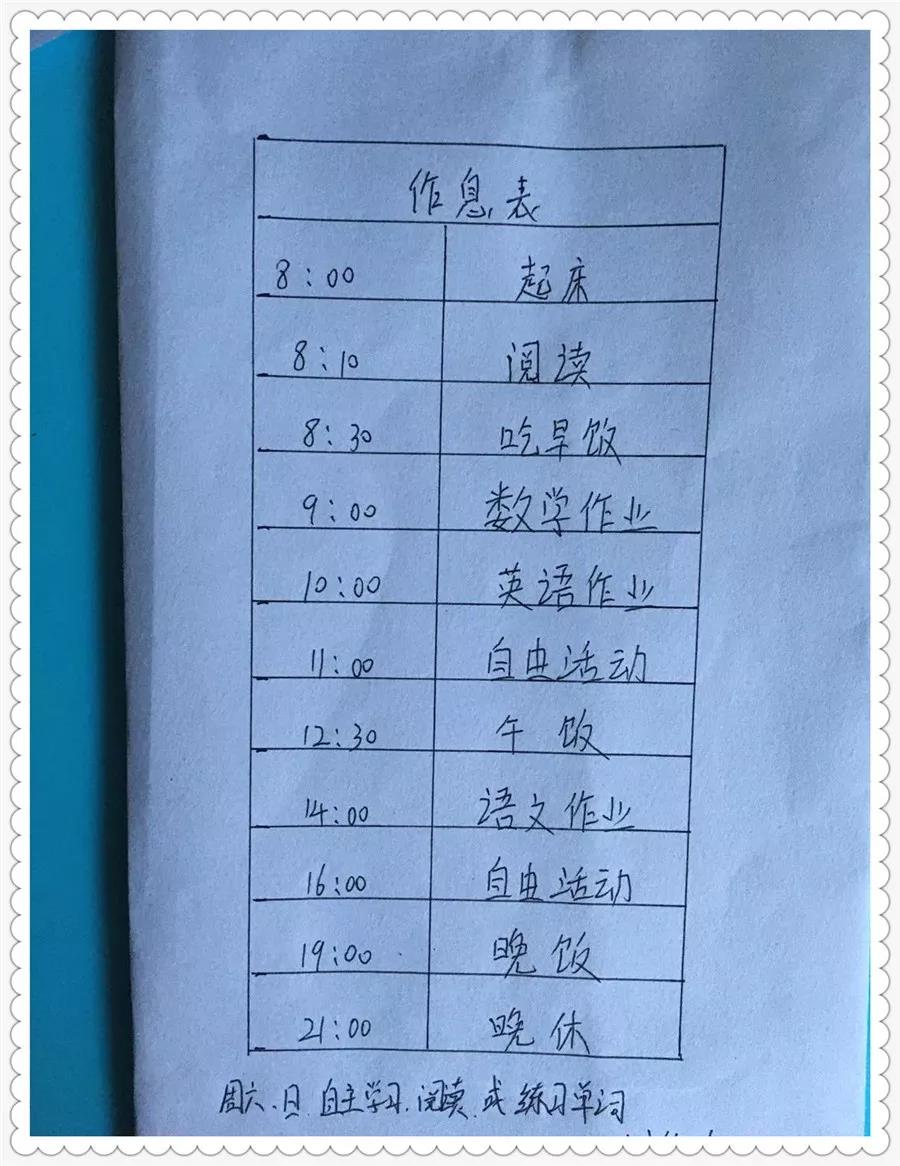 作息表
8:00 起床
8:10 阅读
8:30 吃早饭
9:00 数学作业
10:00 英语作业
11:00 自由活动
12:30 午饭
14:00 语文作业
16:00 自由活动
19:00 晚饭
21:00 晚休
周六、日 自主学习、阅读 或 练习单词